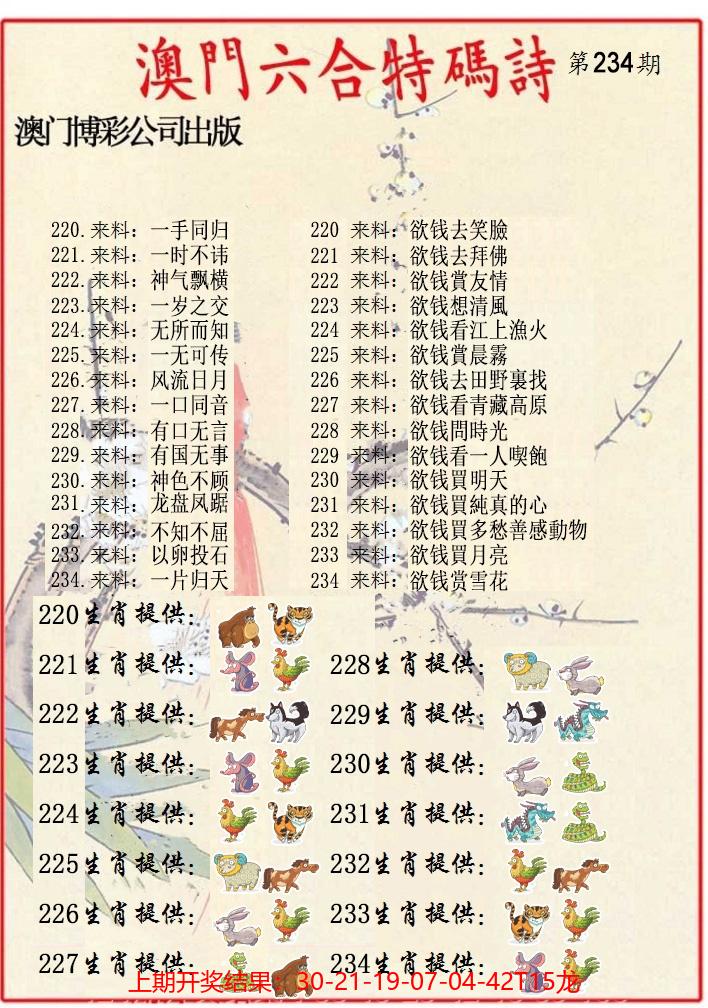 澳門六合特碼詩 第234期
澳门博彩公司出版
220.来料：一手同归
221.来料：一时不讳
222.来料：神气飘横
223.来料：一岁之交
224.来料：无所而知
225.来料：一无可传
226.来料：风流日月
227.来料：一口同音
228.来料：有口无言
229.来料：有国无事
230.来料：神色不顾
231.来料：龙盘凤踞
232.来料：不知不屈
233.来料：以卵投石
234.来料：一片归天
220 来料：欲钱去笑臉
221 来料：欲钱去拜佛
222 来料：欲钱賞友情
223 来料：欲钱想清風
224 来料：欲钱看江上漁火
225 来料：欲钱賞晨霧
226 来料：欲钱去田野裏找
227 来料：欲钱看青藏高原
228 来料：欲钱問時光
229 来料：欲钱看一人喫飽
230 来料：欲钱買明天
231 来料：欲钱買純真的心
232 来料：欲钱買多愁善感動物
233 来料：欲钱買月亮
234 来料：欲钱赏雪花
220生肖提供：
221生肖提供：
222生肖提供：
223生肖提供：
224生肖提供：
225生肖提供：
226生肖提供：
227生肖提供：
228生肖提供：
229生肖提供：
230生肖提供：
231生肖提供：
232生肖提供：
233生肖提供：
234生肖提供：
上期开奖结果：30-21-19-07-04-42T15龙